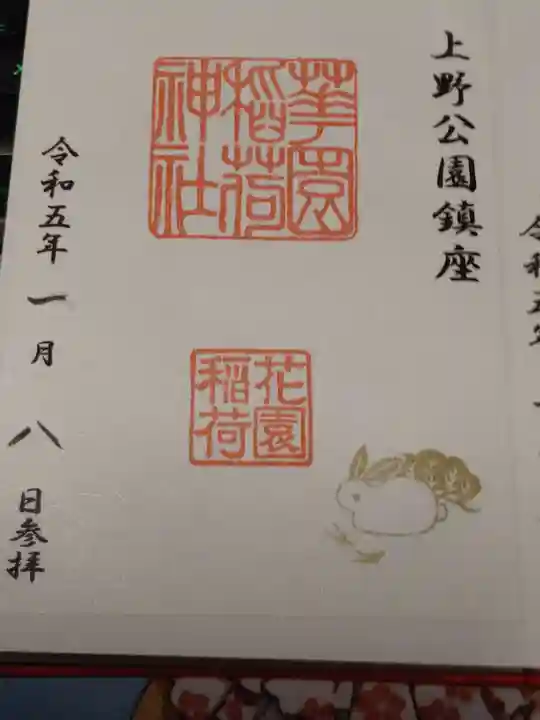 上野公園鎮座
華園
稲荷
神社
花園
稲荷
令和五年一月八日参拝
令和五年一